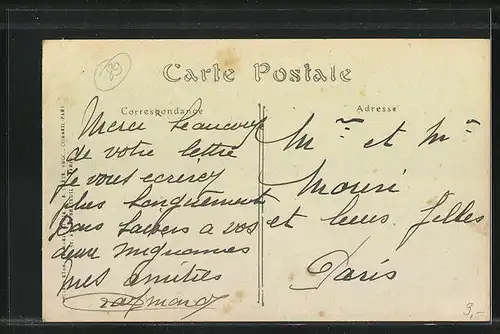 89
Carte Postale
Correspondance
Adresse
Merci beaucoup
de votre lettre
Je vous ecrerez
plus longuement
Bons baisers a vos
deux mignonnes
mes amitiés
Raymond
Mr et Me
Mouri
et leurs filles
Paris
9,-